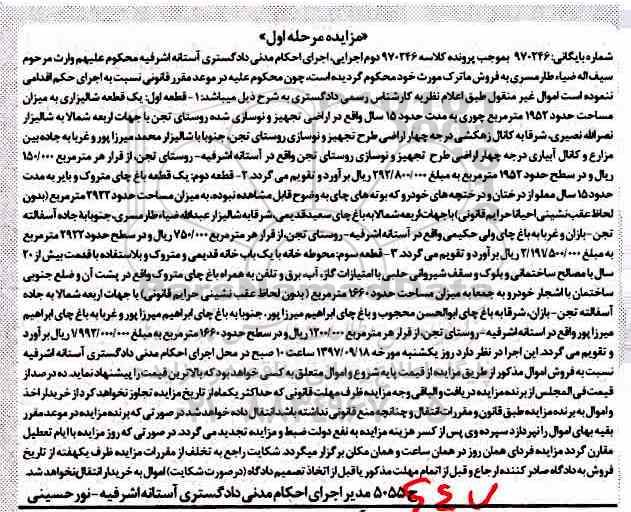 «مزایده مرحله اول»
شماره بایگانی: ۹۷۰۲۴۶ بموجب پرونده کلاسه ۹۷۰۲۴۶ دوم اجرایی، اجرای احکام مدنی دادگستری آستانه اشرفیه محکوم علیهم وراث مرحوم
سیف اله ضیاء طارمسری به فروش ماترک مورث خود محکوم گردیده است، چون محکوم علیه در موعد مقرر قانونی نسبت به اجرای حکم اقدامی
ننموده است اموال غیر منقول طبق اعلام نظریه کارشناس رسمی دادگستری به شرح ذیل میباشد: ۱- قطعه اول: یک قطعه شالیزاری به میزان
مساحت حدود ۱۹۵۲ مترمربع چوری به مدت حدود ۱۵ سال واقع در اراضی تجهیز و نوسازی شده روستای تجن با جهات اربعه شمالا به شالیزار
نصراله نصیری، شرقا به کانال زهکشی درجه چهار اراضی طرح تجهیز و نوسازی روستای تجن، جنوبا با شالیزار محمد میرزا پور و غربا به جاده بین
مزارع و کانال آبیاری درجه چهار اراضی طرح تجهیز و نوسازی روستای تجن واقع در آستانه اشرفیه- روستای تجن، از قرار هر مترمربع ۱۵۰/۰۰۰
ریال و در سطح حدود ۱۹۵۲ مترمربع به مبلغ ۲۹۲/۸۰۰/۰۰۰ ریال برآورد و تقویم می گردد. ۲- قطعه دوم: یک قطعه باغ چای متروک و بایر به مدت
حدود ۱۵ سال مملو از درختان و درختچه های خودرو که بوته های چای به وضوح قابل مشاهده نبوده، به میزان مساحت حدود ۲۹۲۲ مترمربع (بدون
لحاظ عقب نشینی احیانا حرایم قانونی) با جهات اربعه شمالا به باغ چای سعید قدیمی، شرقا به شالیزار عبداله ضیاء طارمسری، جنوبا به جاده آسفالته
تجن- بازان و غربا به باغ چای ولی حکیمی واقع در آستانه اشرفیه- روستای تجن، از قرار هر مترمربع ۷۵۰/۰۰۰ ریال و در سطح حدود ۲۹۲۲ مترمربع
به مبلغ ۲/۱۹۷/۵۰۰/۰۰۰ ریال برآورد و تقویم می گردد. ۳- قطعه سوم: محوطه خانه با یک باب خانه قدیمی و متروک و بلااستفاده با قدمت بیش از ۲۰
سال با مصالح ساختمانی و بلوک و سقف شیروانی حلبی با امتیازات گاز، آب، برق و تلفن به همراه باغ چای متروک واقع در پشت آن و ضلع جنوبی
ساختمان با اشجار خودرو به جمعا به میزان مساحت حدود ۱۶۶۰ مترمربع (بدون لحاظ عقب نشینی حرایم قانونی) با جهات اربعه شمالا به جاده
آسفالته تجن- بازان، شرقا به باغ چای ابوالحسن محجوب و باغ چای ابراهیم میرزا پور، جنوبا به باغ چای ابراهیم میرزا پور و غربا به باغ چای ابراهیم
میرزا پور واقع در استانه اشرفیه- روستای تجن، از قرار هر مترمربع ۱۲۰۰/۰۰۰ ریال و در سطح حدود ۱۶۶۰ مترمربع به مبلغ ۷۹۹۲/۰۰۰/۰۰۰ ریال برآورد
و تقویم می گردد. این اجرا در نظر دارد روز یکشنبه مورخه ۱۳۹۷/۰۹/۱۸ ساعت ۱۰ صبح در محل اجرای احکام مدنی دادگستری آستانه اشرفیه
نسبت به فروش اموال مذکور از طریق مزایده از قیمت پایه شروع و اموال متعلق به کسی خواهد بود که بالاترین قیمت را پیشنهاد نماید. ده درصد از
قیمت فی المجلس از برنده مزایده دریافت و الباقی وجه مزایده ظرف مهلت قانونی که حداکثر یکماه از تاریخ مزایده تجاوز نخواهد کرد از خریدار اخذ
و اموال به برنده مزایده طبق قانون و مقررات انتقال و چنانچه منع قانونی نداشته باشد انتقال داده خواهد شد در صورتی که برنده مزایده در موعد مقرر
بقیه بهای اموال را نپردازد سپرده وی پس از کسر هزینه مزایده به نفع دولت ضبط و مزایده تجدید می گردد. در صورتی که روز مزایده با ایام تعطیل
مقارن گردد مزایده فردای همان روز در همان ساعت و همان مکان برگزار میگردد. شکایت راجع به تخلف از مقررات مزایده ظرف یکهفته از تاریخ
فروش به دادگاه صادر کننده ارجاع و قبل از اتمام مهلت مذکور یا قبل از اتخاذ تصمیم دادگاه (در صورت شکایت) اموال به خریدار انتقال نخواهد شد.
ح ۵۰۵۵ مدیر اجرای احکام مدنی دادگستری آستانه اشرفیه- نور حسینی